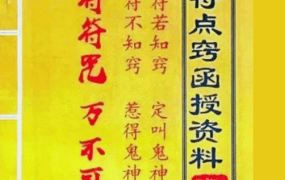 符点窍函授资料
符若知窍 定叫鬼神
符不知窍 惹得鬼神
符符咒 万不可